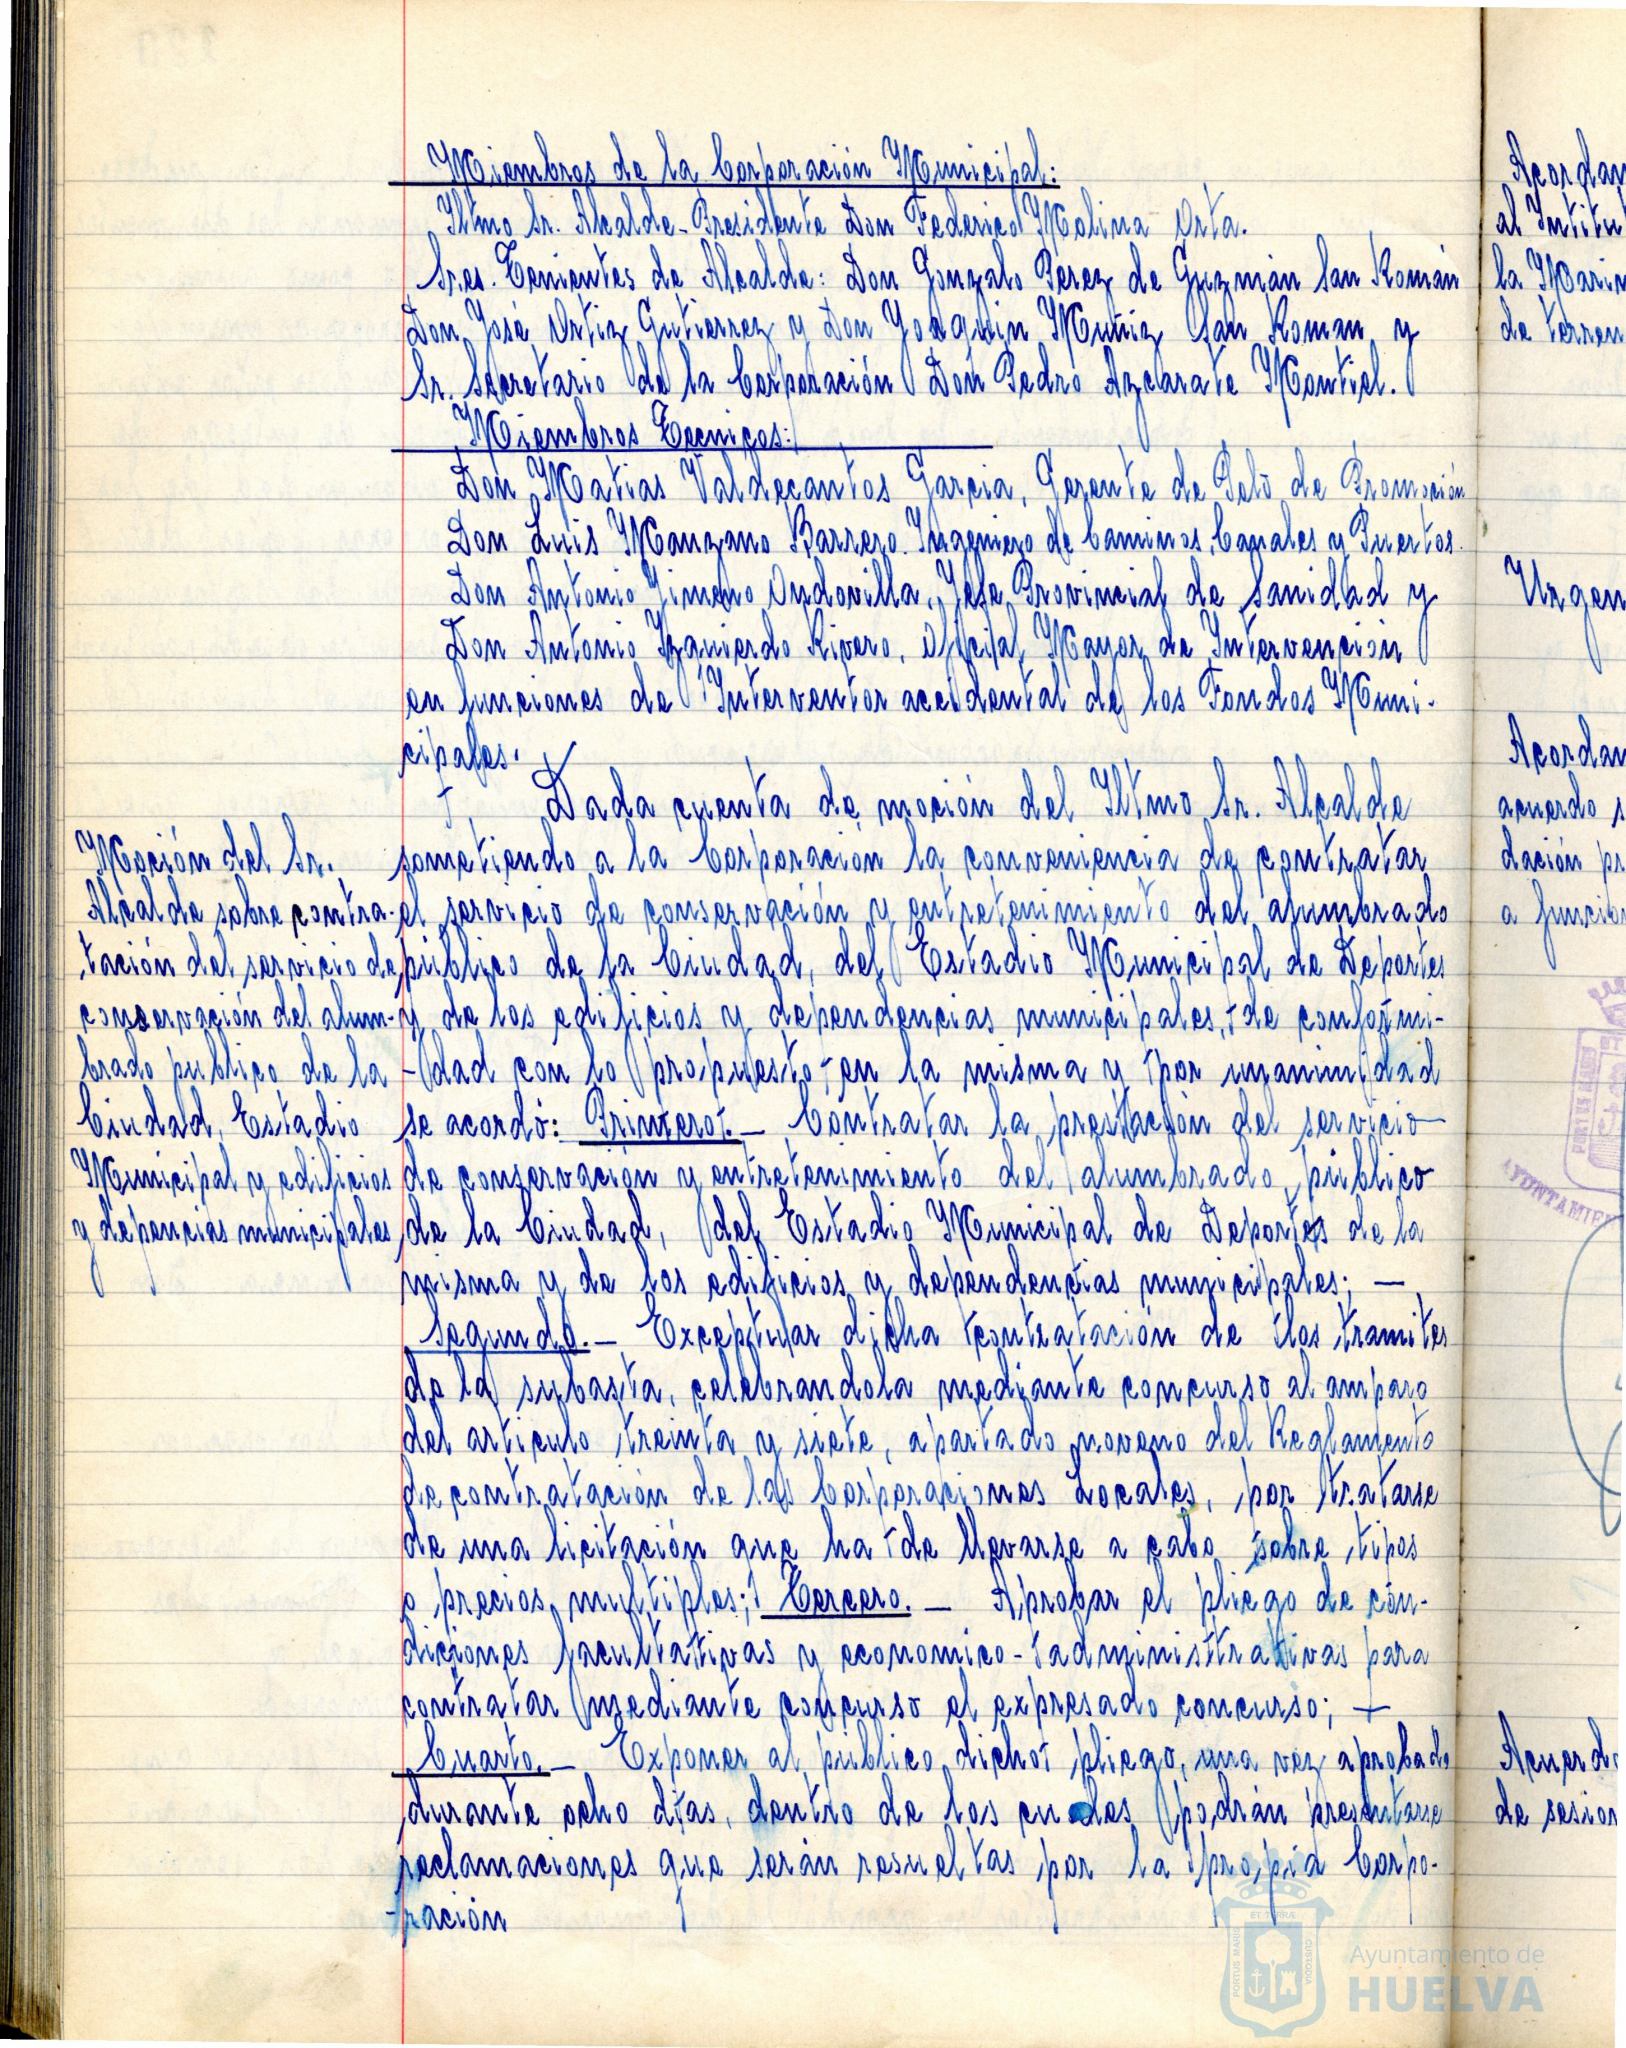 Miembros de la Corporación Municipal:
Iltmo Sr. Alcalde-Presidente Don Federico Molina Orta.
Sres. Tenientes de Alcalde: Don Gonzalo Pérez de Guzmán San Román
Don José Ortiz Gutierrez y Don Joaquin Muñiz San Roman y
Sr. Secretario de la Corporación Don Pedro Azcarate Montiel.
Miembros Tecnicos:
Don Matias Valdecantos Garcia, Gerente de Polo de Promoción
Don Luis Manzano Barrero. Ingeniero de Caminos, Canales y Puertos.
Don Antonio Jimeno Ondovilla, Jefe Provincial de Sanidad y
Don Antonio Izquierdo Rivero, Oficial Mayor de Intervención
en funciones de Interventor accidental de los Fondos Muni-
cipales.
Moción del Sr.
Alcalde sobre contra-
tación del servicio de
conservación del alum-
brado publico de la
Ciudad, Estadio
Municipal y edificios
y depencias municipales
Dada cuenta de moción del Iltmo Sr. Alcalde
sometiendo a la Corporación la conveniencia de contratar
el servicio de conservación y entretenimiento del alumbrado
público de la Ciudad, del Estadio Municipal de Deportes
y de los edificios y dependencias municipales, de conformi-
-dad con lo propuesto en la misma y por unanimidad
se acordó: Primero.- Contratar la prestación del servicio
de conservación y entretenimiento del alumbrado público
de la Ciudad, del Estadio Municipal de Deportes de la
misma y de los edificios y dependencias municipales; —
Segundo.- Exceptuar dicha contratación de los tramites
de la subasta, celebrandola mediante concurso al amparo
del articulo treinta y siete, apartado noveno del Reglamento
de contratación de las Corporaciones Locales, por tratarse
de una licitación que ha de llevarse a cabo sobre tipos
o precios multiples; Tercero. — Aprobar el pliego de con-
diciones facultativas y economico-administrativas para
contratar mediante concurso el expresado concurso; —
Cuarto.- Exponer al público dicho pliego, una vez aprobado
durante ocho dias, dentro de los cuales podrán presentarse
reclamaciones que serán resueltas por la propia Corpo-
-ración
Acordan
al Intitu
la Marin
de terren
Urgen
Acordan
acuerdo s
dación pr
a funcion
AYUNTAMIE
Acuerdo
de sesion
PORTUS MARIS
ET TERRÆ
CUSTODIA
Ayuntamiento de
HUELVA